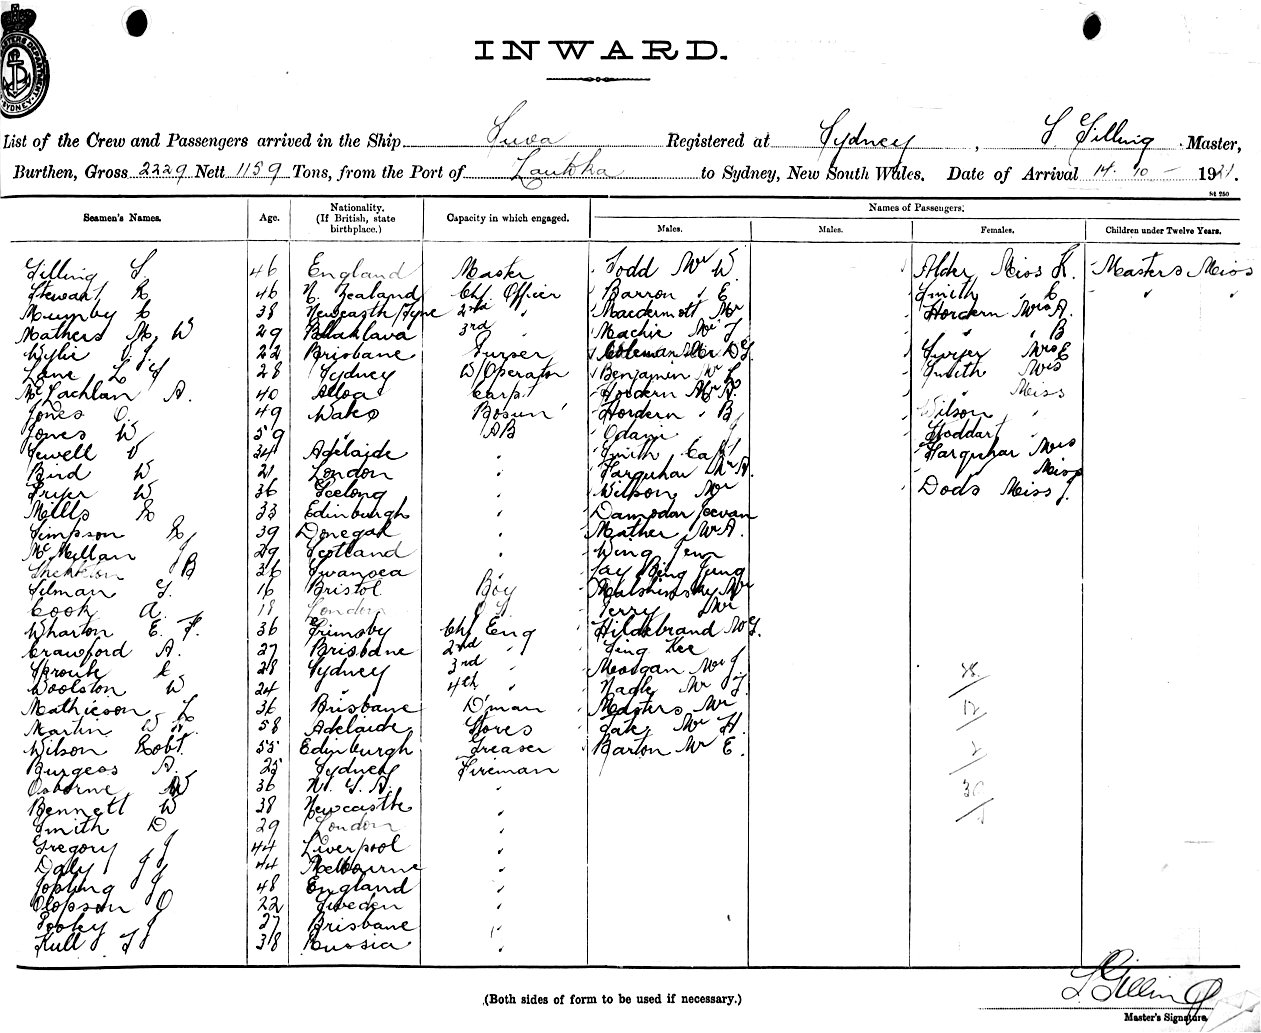 INWARD.
List of the Crew and Passengers arrived in the Ship Suva Registered at Sydney, S Gilling Master,
Burthen, Gross 2229 Nett 1159 Tons, from the Port of Lautoka to Sydney, New South Wales. Date of Arrival 14. 10 - 1921.
St 250
Seamen's Names. Age. Nationality. (If British, state birthplace.) Capacity in which engaged. Names of Passengers.
Males. Males. Females. Children under Twelve Years.
Gilling S. 46 England Master Todd Mr W. Alder Miss K. Masters Miss
Stewart R 46 N. Zealand Chf. Officer Barron " E Smith " E " "
Mumby C 38 Newcastle/Tyne 2nd " Macdermott Mr Hordern Miss A.
Mathers M. W 29 Balaklava 3rd " Mackie Mr J " " B
Wylie 22 Brisbane Purser Coleman Mr D G. Mrs E
Lane L 28 Sydney W/Operator Benjamin Mr L Smith Mrs
McLachlan A. 40 Alloa Carp. Hordern Mr A. " Miss
Jones O. 49 Wales Bosun Hordern " B Wilson "
Jones W 59 " AB Odami J Stoddart "
Jewell 34 Adelaide " Smith Capt Farquhar Mrs
Bird W 21 London " Farquhar Mr A. " Miss
Fryer W 36 Geelong " Wilson Mr Dods Miss J.
Mills R 33 Edinburgh " Damodar Jeevan
Simpson R 39 Donegal " Mather Mr A.
McMillan J 29 Scotland " Wing Jew
B 36 Swansea " Jay Bing Jung
Silman G. 16 Bristol Boy Mr
Cook A. 18 London Terry Mr
Wharton E. F. 36 Grimsby Chf Eng Hildebrand Mr G.
Crawford A. 27 Brisbane 2nd " Sing Kee
Sproule C 28 Sydney 3rd " Morgan Mr J.
Woolston W 24 " 4th " Nagle Mr J.
Mathieson L 36 Brisbane D'man Masters Mr
Martin W H. 58 Adelaide Stores Mr H.
Wilson Robt. 55 Edinburgh Greaser Barton Mr E.
Burgess A. 25 Sydney Fireman
Osborne W 36 N. S. A. "
Bennett W 38 Newcastle "
Smith D 29 London "
Gregory J 44 Liverpool "
Daly J J 44 Melbourne "
Jopling J 48 England "
Olopson O 22 Sweden "
Pooley J 27 Brisbane "
Kull J 38 Russia "
(Both sides of form to be used if necessary.)
S Gilling
Master's Signature.